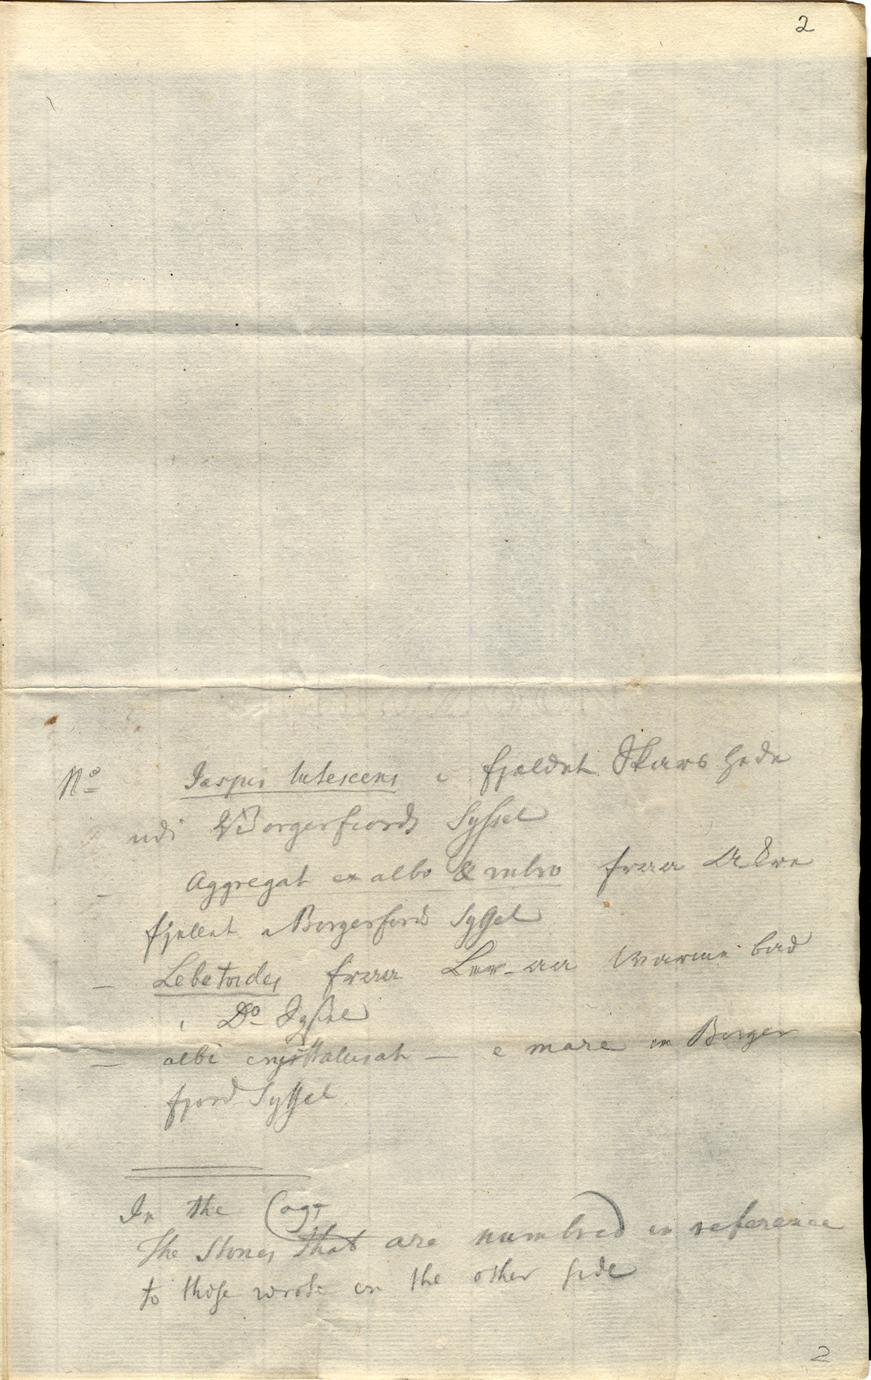 2
No Iaspis lutescens i fjeldet Skarshede
udi Borgerfiords Syssel
- Aggregat ex albo & rubro fraa Akre
fjellet Borgerfiord Syssel
- Lebetoides fraa Ler-aa warme bad
i Do Syssel
- albi crystallisat - e mare in Borger
fjord Syssel
In the Cags
The stones that are numbred in reference
to those wrote on the other side
2